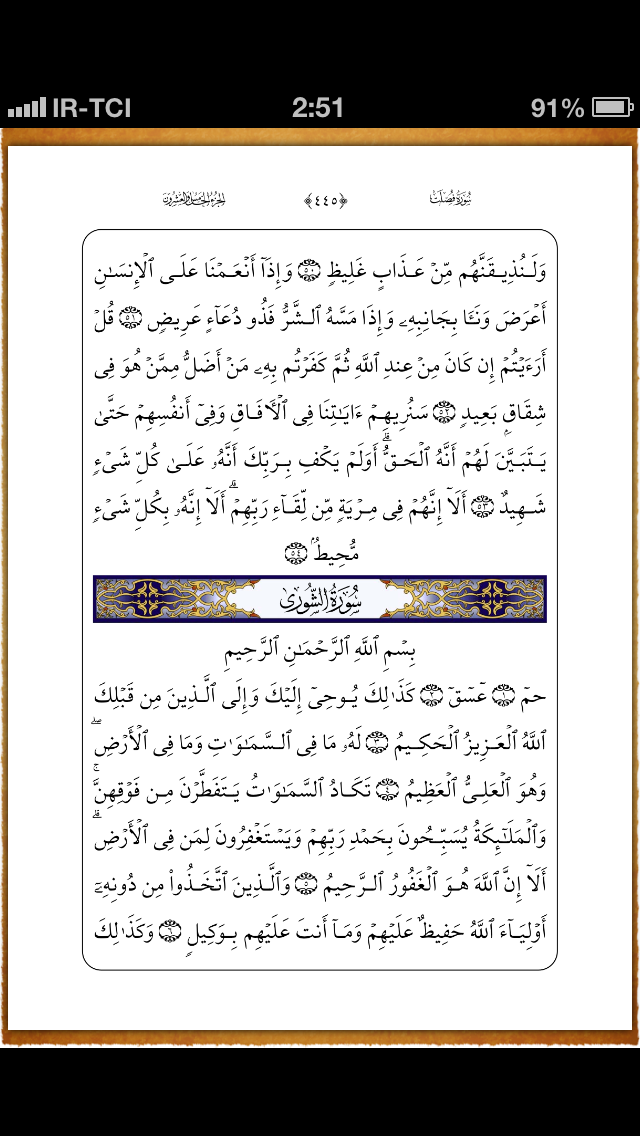 IR-TCI 2:51 91%
سُورَةُ فُصِّلَتْ ﴿٤٤٥﴾ الجُزءُ الخَامِسُ وَالعِشْرُونَ
وَلَنُذِيقَنَّهُم مِّنْ عَذَابٍ غَلِيظٍ ۝٥٠ وَإِذَآ أَنْعَمْنَا عَلَى ٱلْإِنسَـٰنِ
أَعْرَضَ وَنَـَٔا بِجَانِبِهِۦ وَإِذَا مَسَّهُ ٱلشَّرُّ فَذُو دُعَآءٍ عَرِيضٍ ۝٥١ قُلْ
أَرَءَيْتُمْ إِن كَانَ مِنْ عِندِ ٱللَّهِ ثُمَّ كَفَرْتُم بِهِۦ مَنْ أَضَلُّ مِمَّنْ هُوَ فِى
شِقَاقٍۭ بَعِيدٍ ۝٥٢ سَنُرِيهِمْ ءَايَـٰتِنَا فِى ٱلْـَٔافَاقِ وَفِىٓ أَنفُسِهِمْ حَتَّىٰ
يَتَبَيَّنَ لَهُمْ أَنَّهُ ٱلْحَقُّ ۗ أَوَلَمْ يَكْفِ بِرَبِّكَ أَنَّهُۥ عَلَىٰ كُلِّ شَىْءٍ
شَهِيدٌ ۝٥٣ أَلَآ إِنَّهُمْ فِى مِرْيَةٍ مِّن لِّقَآءِ رَبِّهِمْ ۗ أَلَآ إِنَّهُۥ بِكُلِّ شَىْءٍ
مُّحِيطٌۢ ۝٥٤
سُورَةُ الشُّورَى
بِسْمِ ٱللَّهِ ٱلرَّحْمَـٰنِ ٱلرَّحِيمِ
حمٓ ۝١ عٓسٓقٓ ۝٢ كَذَٰلِكَ يُوحِىٓ إِلَيْكَ وَإِلَى ٱلَّذِينَ مِن قَبْلِكَ
ٱللَّهُ ٱلْعَزِيزُ ٱلْحَكِيمُ ۝٣ لَهُۥ مَا فِى ٱلسَّمَـٰوَٰتِ وَمَا فِى ٱلْأَرْضِ ۖ
وَهُوَ ٱلْعَلِىُّ ٱلْعَظِيمُ ۝٤ تَكَادُ ٱلسَّمَـٰوَٰتُ يَتَفَطَّرْنَ مِن فَوْقِهِنَّ ۚ
وَٱلْمَلَـٰٓئِكَةُ يُسَبِّحُونَ بِحَمْدِ رَبِّهِمْ وَيَسْتَغْفِرُونَ لِمَن فِى ٱلْأَرْضِ ۗ
أَلَآ إِنَّ ٱللَّهَ هُوَ ٱلْغَفُورُ ٱلرَّحِيمُ ۝٥ وَٱلَّذِينَ ٱتَّخَذُوا۟ مِن دُونِهِۦٓ
أَوْلِيَآءَ ٱللَّهُ حَفِيظٌ عَلَيْهِمْ وَمَآ أَنتَ عَلَيْهِم بِوَكِيلٍ ۝٦ وَكَذَٰلِكَ